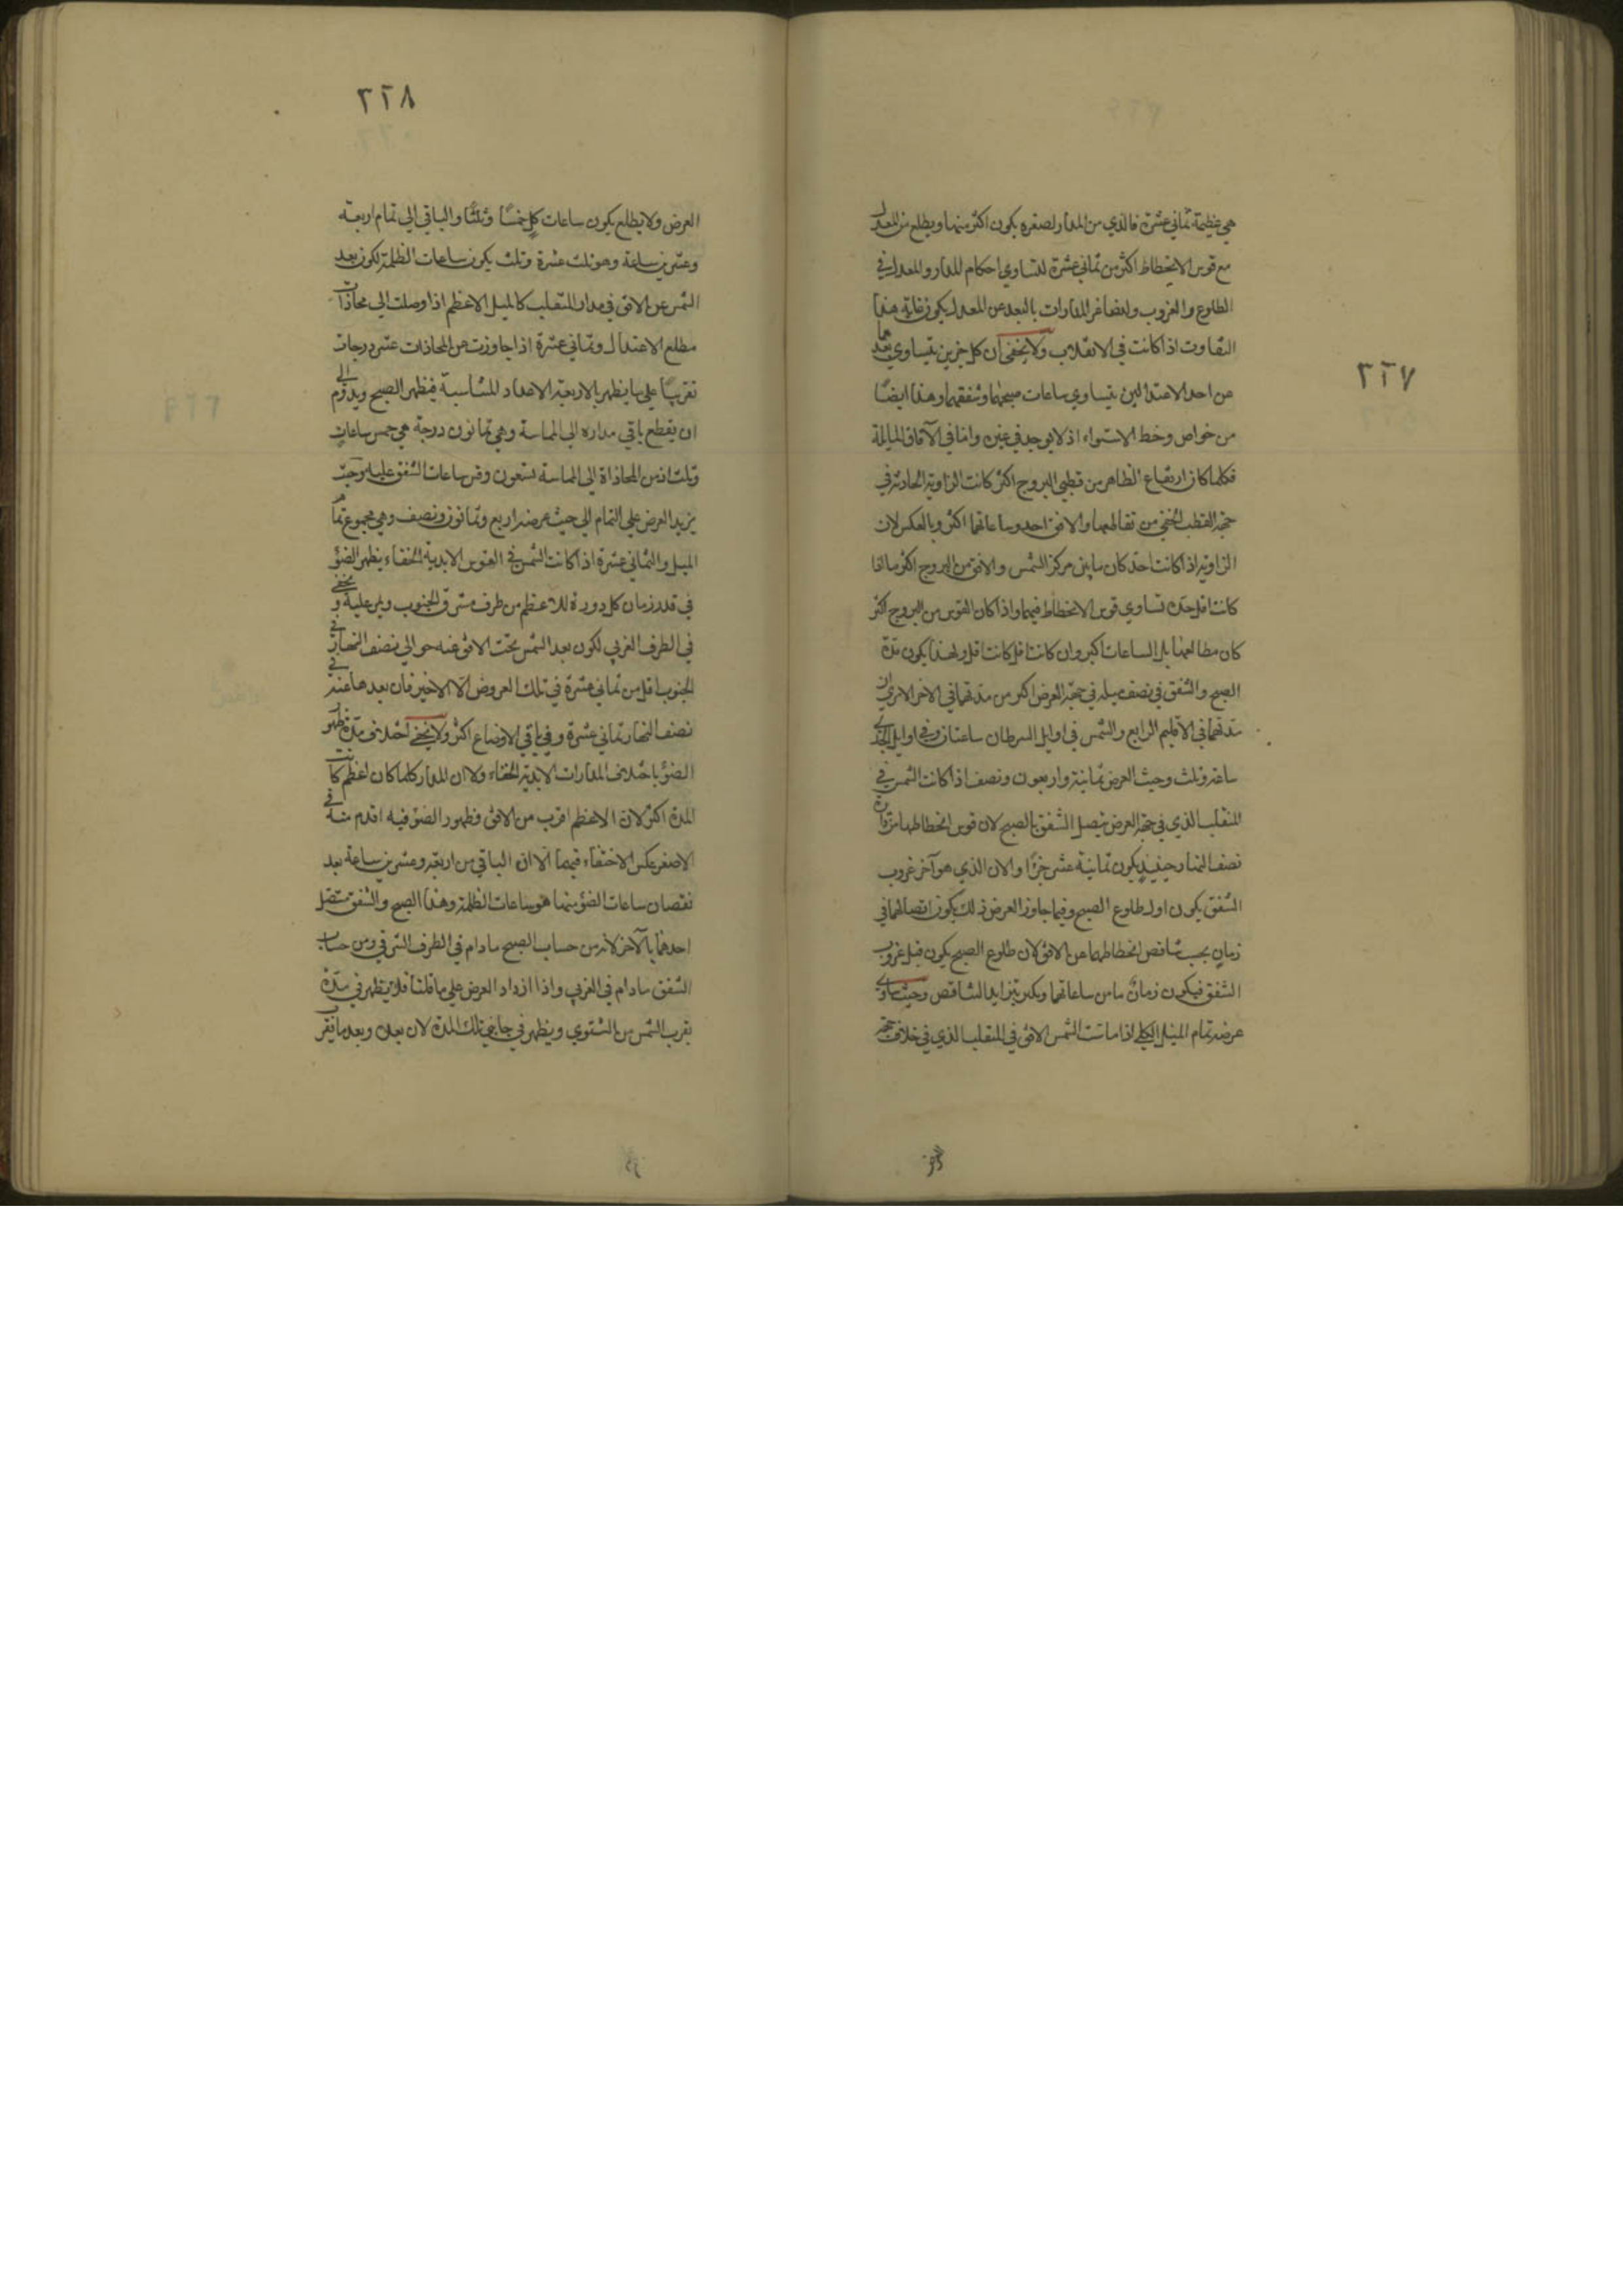 ٢٢٧
هي عظيمة ثماني عشرة فالذي من المدار لصغره يكون اكثر منها ويطلع من المعدل
مع قوس الانحطاط اكثر من ثماني عشرة لتساوي احكام المدار والمعدل في
الطلوع والغروب ولتصاغر المدارات بالبعد عن المعدل يكون غاية هذا
التفاوت اذا كانت في الانقلاب ولا يخفى ان كل جزئين يتساوي بعدهما
من احد الاعتدالين يتساوي ساعات صبحهما وشفقهما وهذا ايضًا
من خواص خط الاستواء اذ لا يوجد في غيره واما في الآفاق المايلة
فكلما كان ارتفاع الظاهر من قطبي البروج اكثر كانت الزاوية الحادثة في
جهة القطب الخفي من تقاطعها والافق احد وساعاتها اكثر وبالعكس لان
الزاوية اذا كانت احد كان ما بين مركز الشمس والافق من البروج اكثر مما اذا
كانت اقل حدة لتساوي قوس الانحطاط فيهما واذا كان القوس من البروج اكثر
كان مطالعها بل الساعات اكبر وان كانت اقل كانت اقل ولهذا يكون مدة
الصبح والشفق في نصف ميله في جهة العرض اكبر من مدتهما في الاخر الا يرى ان
مدتهما في الاقليم الرابع والشمس في اوايل السرطان ساعتان وفي اوايل الجدي
ساعة وثلث وحيث العرض ثمانية واربعون ونصف اذا كانت الشمس في
المنقلب الذي في جهة العرض يتصل الشفق بالصبح لان قوس انحطاطها من دائرة
نصف النهار حينئذٍ يكون ثمانية عشر جزًا والان الذي هو آخر غروب
الشفق يكون اول طلوع الصبح وفيما جاوز العرض ذلك يكون اتصالهما في
زمانٍ بحسب تناقص انحطاطهما عن الافق لان طلوع الصبح يكون قبل غروب
الشفق فيكون زمانٌ ما من ساعاتهما ويكبر بتزايد التناقص وحيث يساوي
عرضه تمام الميل الكلي اذا ماست الشمس الافق في المنقلب الذي في خلاف جهة
٢٢٨
العرض ولا يطلع يكون ساعات كلٍ خمسًا وثلثًا والباقي الى تمام اربعة
وعشرين ساعة وهو ثلث عشرة وثلث يكون ساعات الظلمة لكون بعد
الشمس عن الافق في مدار المنقلب كالميل الاعظم اذا وصلت الى محاذات
مطلع الاعتدال وثماني عشرة اذا جاوزت عن المحاذات عشر درجات
تقريبًا على ما يظهر بالاربعة الاعداد المتناسبة فيظهر الصبح ويدوم الى
ان يقطع باقي مداره الى المماسة وهي ثمانون درجة هي خمس ساعاتٍ
وثلث اذ من المحاذاة الى المماسة تسعون وقس ساعات الشفق عليه وحيث
يزيد العرض على التمام الى حيث عرضه اربع وثمانون ونصف وهي مجموع تمام
الميل والثماني عشرة اذا كانت الشمس في القوس الابدية الخفاء يظهر الضوٕ
في قدر زمان كل دورة للاعظم من طرف مشرق الجنوب ويمر عليه ويخفى
في الطرف الغربي لكون بعد الشمس تحت الافق عنه حوالي نصف النهار في
الجنوب اقل من ثماني عشرة في تلك العروض الا الاخير فان بعدها عند
نصف النهار ثماني عشرة وفي باقي الاوضاع اكثر ولا يخفى اختلاف مدة ظهور
الضوٕ باختلاف المدارات الابدية الخفاء ولان المدار كلما كان اعظم كانت
المدة اكثر لان الاعظم اقرب من الافق وظهور الضوٕ فيه اقدم منه في
الاصغر عكس الاختفاء فيهما الا ان الباقي من اربعة وعشرين ساعة بعد
نقصان ساعات الضوٕ منها هو ساعات الظلمة وهذا الصبح والشفق متصل
احدهما بالآخر لانه من حساب الصبح ما دام في الطرف الشرقي ومن حساب
الشفق ما دام في الغربي واذا ازداد العرض على ما قلنا فلا يظهر في مدة
بقرب الشمس من الشتوي ويظهر في جانبي تلك المدة لان بعد وبعد ما تقر